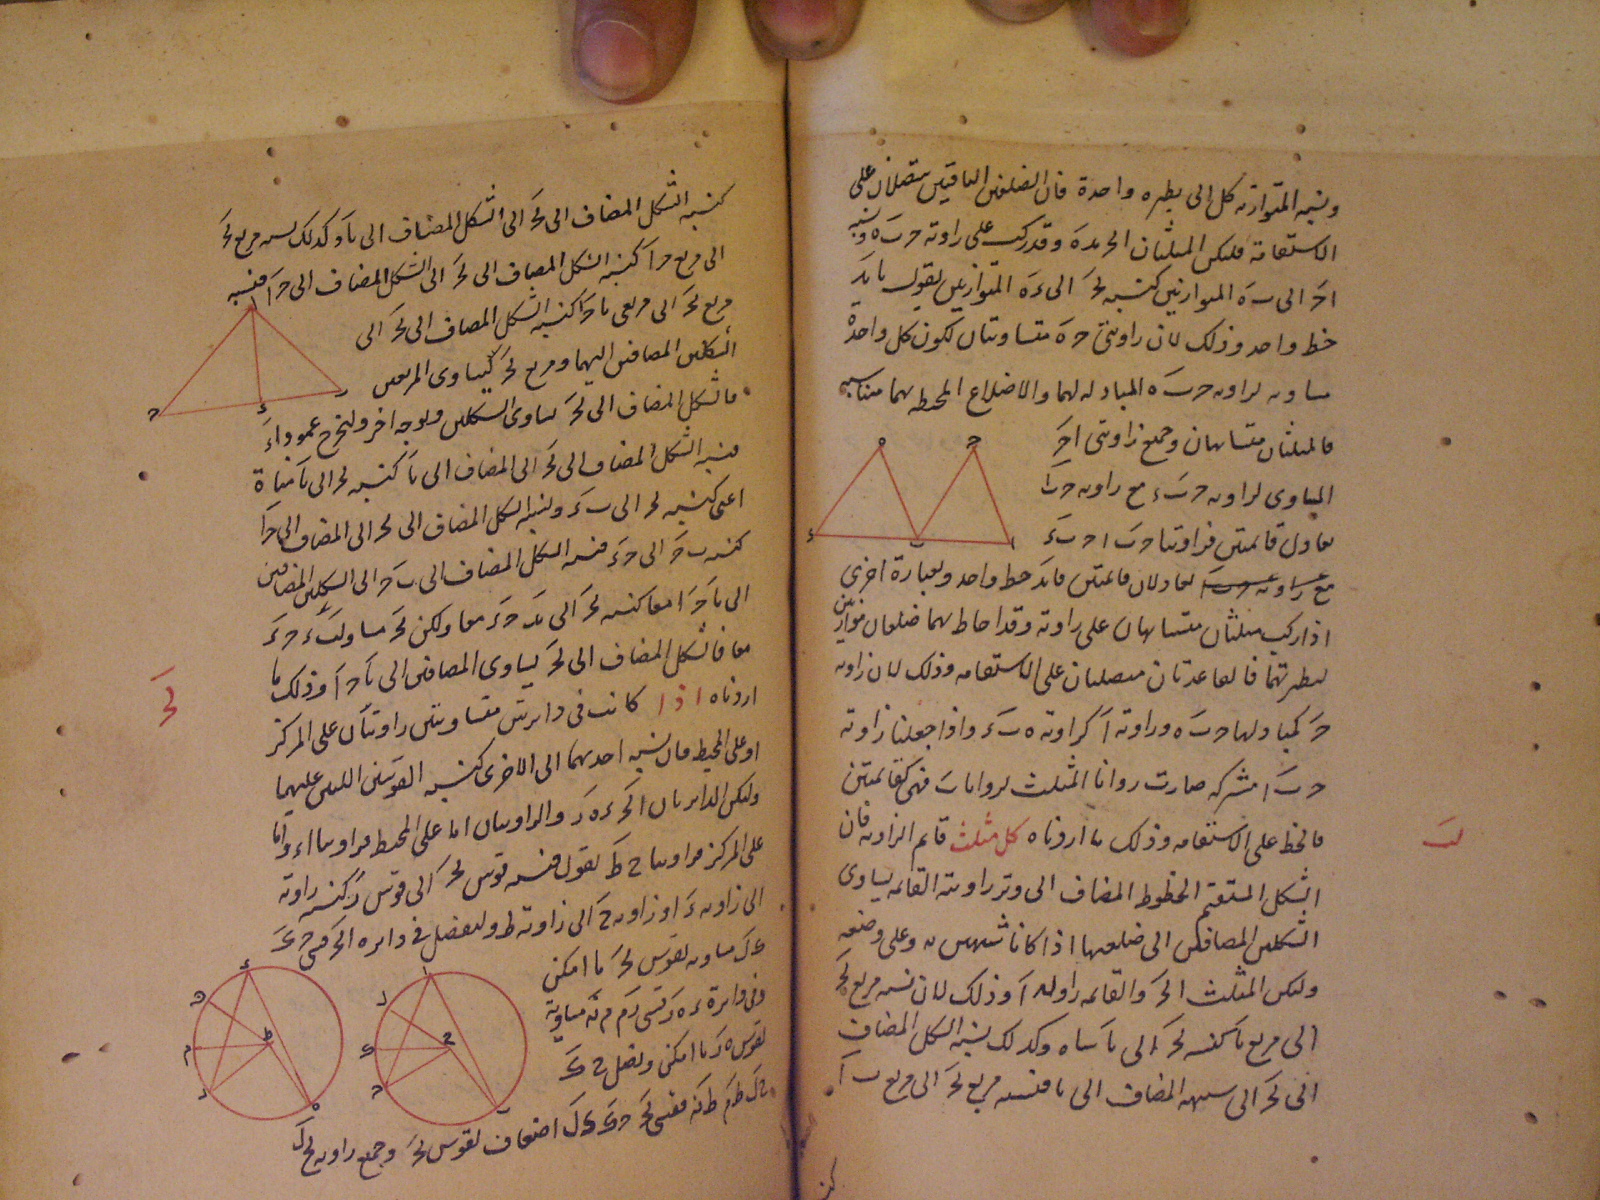 ونسبه المتوازيه كل الى نظيره واحدة فان الضلعين الباقيين متصلان على
الاستقامة فليكن المثلثان ا ب ح د ه وقد ركب على زاوية ح ب ه ونسبة
ا ح الى ب ه المتوازيين كنسبه ب ح الى د ه المتوازيين نقول فا ب د
خط واحد وذلك لان زاويتى ح ه متساويتان لكون كل واحدة
مساويه لزاويه ح ب ه المبادله لهما والاضلاع المحيطه بهما متناسبه
فالمثلثان متشابهان وجميع زاويتى ا ح
المساوى لزاويه ح ب د مع زاويه ح ب ا
يعادل قائمتين فزاويتا ح ب ا ح ب د
يعادلان قائمتين فا ب د خط واحد وبعبارة اخرى
اذا ركب مثلثان متشابهان على زاوية وقد احاط بهما ضلعان موازيين
لنظيرتهما فالقاعدتان متصلتان على الاستقامه وذلك لان زاويه
ح كمبادلها ح ب ه وزاوية ا كزاوية ه ب د واذا جعلنا زاوية
ح ب ا مشتركه صارت زوايا المثلث لزوايا ب فهى كقائمتين
فالخط على الاستقامه وذلك ما اردناه كل مثلث قايم الزاويه فان
لب
الشكل المستقيم الخطوط المضاف الى وتر زاويته القائمه يساوى
الشكلين المضافين الى ضلعيها اذا كانا شبيهين به وعلى وضعه
وليكن المثلث ا ب ح والقائمه زاويه ا وذلك لان نسبه مربع ب ح
الى مربع ب ا كنسبه ب ح الى ب ا مثناه وكذلك نسبه الشكل المضاف
الى ب ح الى شبيهه المضاف الى ب ا فنسبه مربع ب ح الى مربع ب ا
كنسبه الشكل المضاف الى ب ح الى الشكل المضاف الى ب ا وكذلك نسبه مربع ب ح
الى مربع ح ا كنسبه الشكل المضاف الى ب ح الى الشكل المضاف الى ح ا فنسبه
مربع ب ح الى مربعى ب ا ح ا كنسبه الشكل المضاف الى ب ح الى
الشكلين المضافين اليهما ومربع ب ح يساوى المربعين
فالشكل المضاف الى ب ح يساوى الشكلين وبوجه اخر ولنخرج عمود ا د
فنسبه الشكل المضاف الى ب ح الى المضاف الى ب ا كنسبه ب ح الى ب ا مثناة
اعنى كنسبه ب ح الى ب د ونسبه الشكل المضاف الى ب ح الى المضاف الى ح ا
كنسبه ب ح الى ح د فنسبه الشكل المضاف الى ب ح الى الشكلين المضافين
الى ب ا ح ا معا كنسبه ب ح الى ب د ح د معا ولكن ب ح مساو لب د ح د
معا فالشكل المضاف الى ب ح يساوى المضافين الى ب ا ح ا وذلك ما
اردناه اذا كانت فى دايرتين متساويتين زاويتان على المركز
لح
او على المحيط فان نسبه احديهما الى الاخرى كنسبه القوسين اللتين عليهما
وليكن الدايرتان ا ب ح د ه ر والزاويتان اما على المحيط فزاويتا ا د واما
على المركز فزاويتا ح ط نقول فنسبه قوس ب ح الى قوس ه ر كنسبه زاوية
الى زاويه د او زاويه ح الى زاوية ط ولنفصل فى دايره ا ب ح قسى ح ى
ى ك مساويه لقوس ب ح ما امكن
وفى دايرة د ه ر قسى ر م م ن مساوية
لقوس ه ر ما امكن ونصل ح ى
ح ك ط م ط ن فقسى ب ح ح ى ى ك اضعاف لقوس ب ح وجميع زاويه ب ح ك